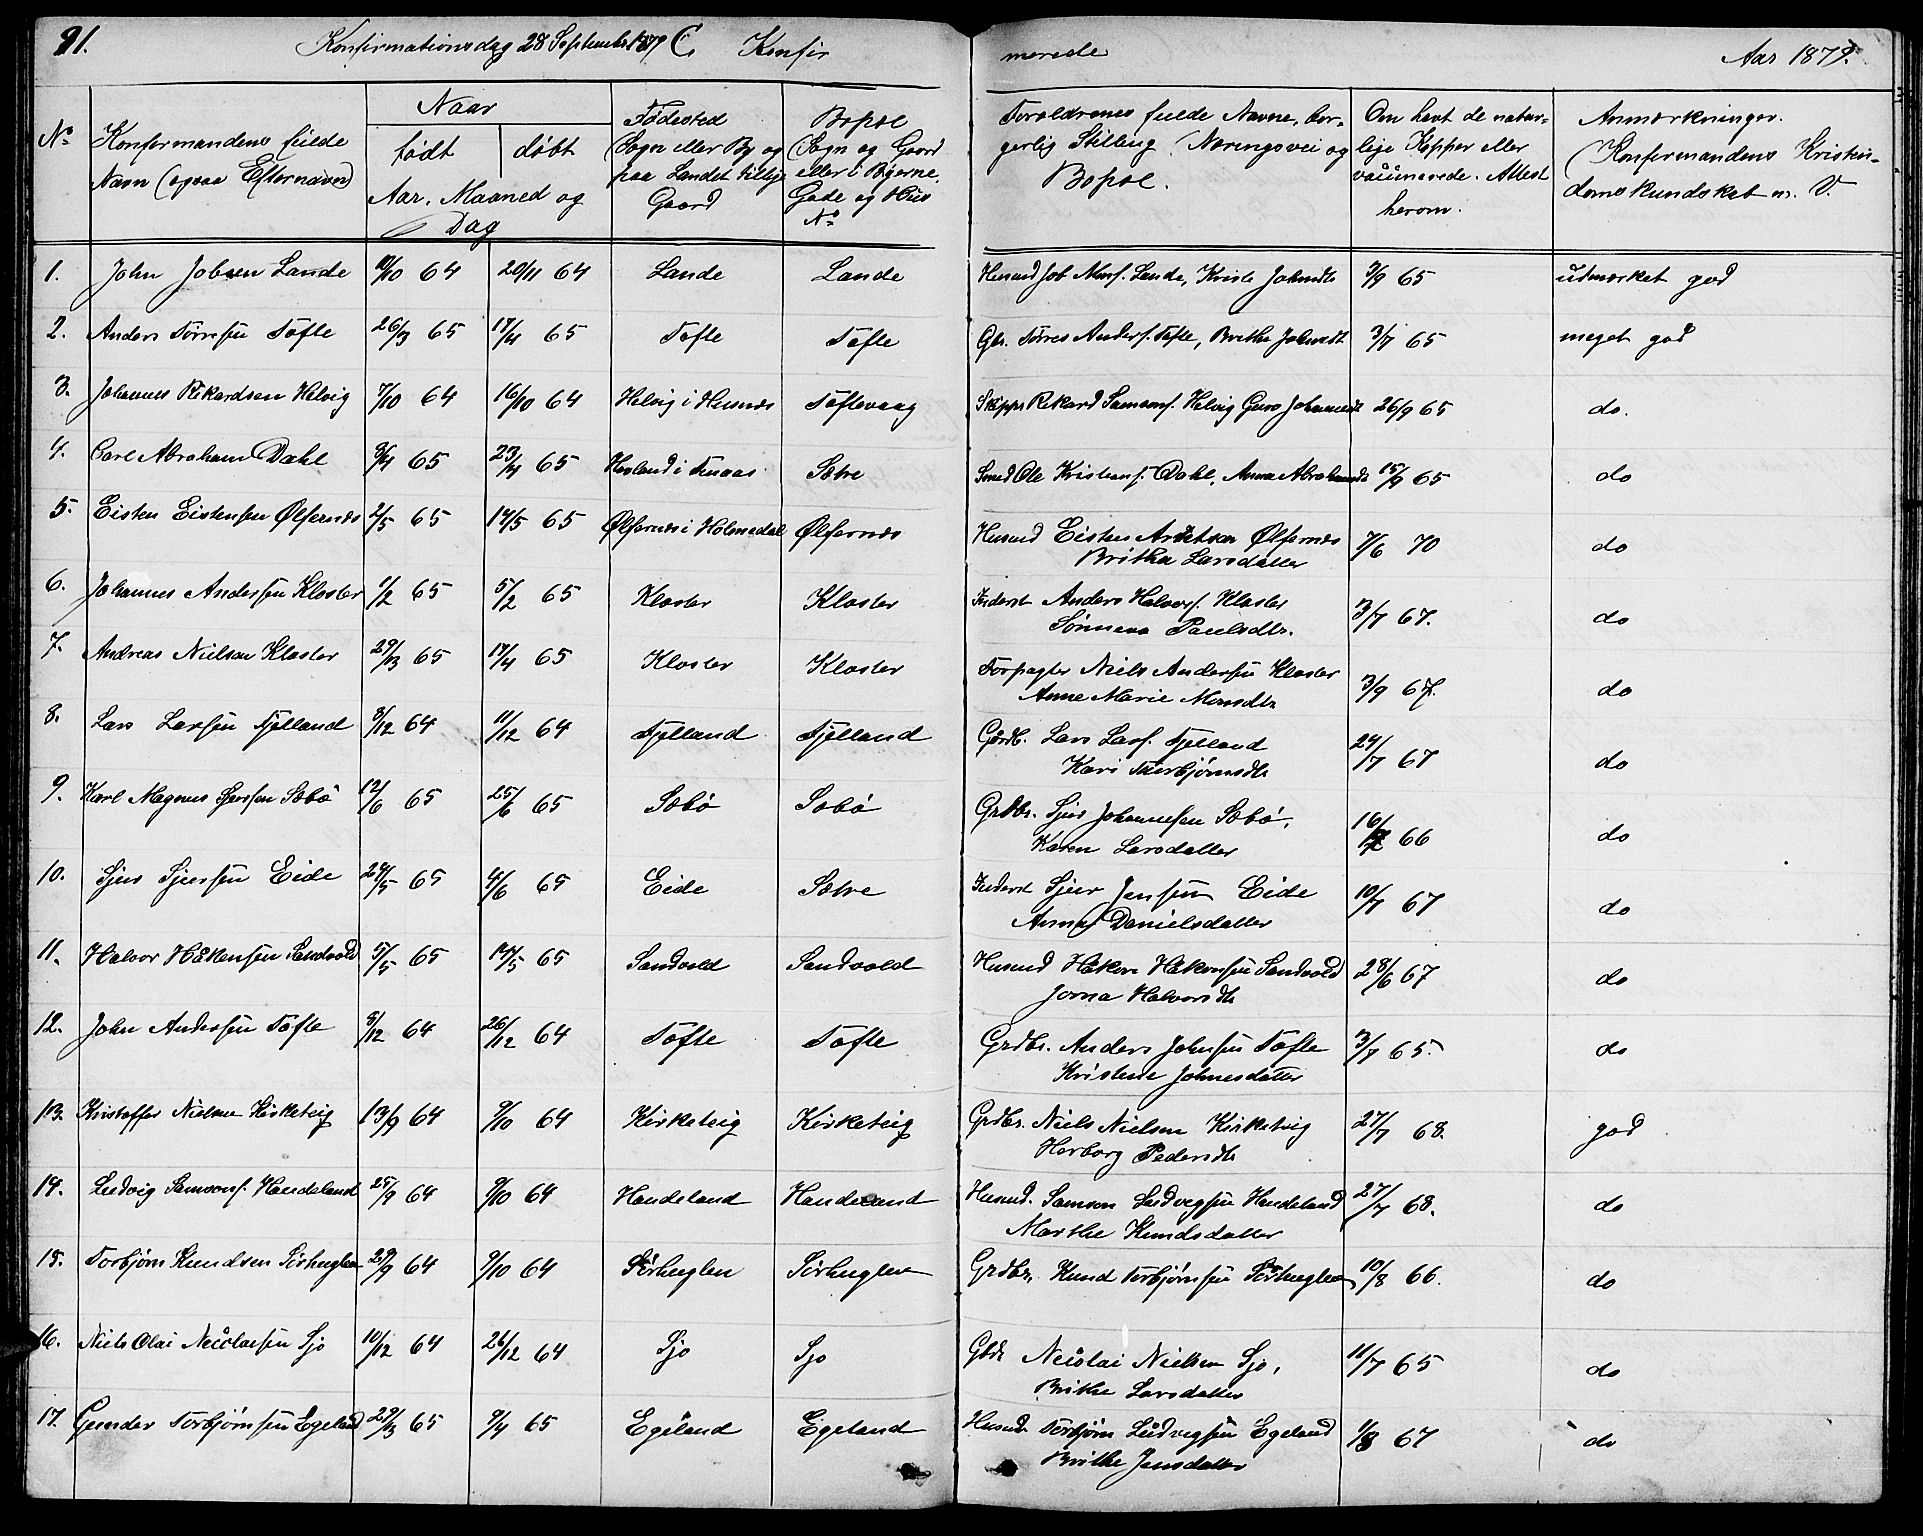 91. Konfirmationsdag 28 September 1879 C. Konfir merede Aar 1879.
No Konfirmandens fulde Navn (ogsaa Efternavn)
Naar født døbt Aar, Maaned og Dag
Fødested (Sogn eller By og paa Landet tillige Gaard
Bopæl (Sogn og Gaard eller i Byerne Gade og Hus No
Foræeldrenes fulde Navne, borgerlig Stilling (Næringsvei og Bopæl.
Om havt de naturlige Kopper eller vaccinerede. Attest herom.
Anmærkninger. (Konfirmandens Kristendomskundskab m. V.
1. John Jobsen Lande 11/10 64 20/11 64 Lande Lande Husmd Job Lande, Kriste Johnsdtr 3/9 65 udmærket god
2. Anders Tørresen Tofte 26/3 65 17/4 65 Tofte Tofte Gbr. Tørres Anders. Tofte, Brithe Johnsdt 3/7 65 meget god
3. Johannes Rikardsen Helvig 7/10 64 16/10 64 Helvig i Husnæs Toftevaag Skipper Rikard Samsons. Helvig Guro Johannesdt 26/9 65 do.
4. Carl Abraham Dahl 3/4 65 23/4 65 Sætre Smed Ole Kristians. Dahl, Anna Abrahamsdt 15/9 65 do
5. Eisten Eistensen Ølfernæs 2/5 65 14/5 65 Ølfernæs i Holmedal Ølfernæs Husmd Eisten Ølfernæs Britha Larsdatter 7/6 70 do
6. Johannes Andersen Kloster 1/2 65 5/2 65 Kloster Kloster Inderst Anders Halvors. Kloster Sønneva Paulsdtr. 3/7 67. do
7. Andreas Nielsen Kloster 29/3 65 17/4 65 Kloster Kloster Forpagter Niels Andersen Kloster Anne Marie Monsdtr 3/9 67. do
8. Lars Larsen Fjelland 3/12 64 11/12 64 Fjelland Fjelland Gdrb. Lars Lars. Fjelland Kari Thorbjørnsdtr 24/7 67 do
9. Karl Magnus Sjursen Sæbø 12/6 65 25/6 65 Sæbø Sæbø Grdbr. Sjur Johannesen Sæbø, Karen Larsdatter 16/7 66 do
10. Sjur Sjursen Eide 24/5 65 4/6 65 Eide Sætre Inderst Sjur Jensen Eide Anna Danielsdatter 10/7 67 do
11. Halvor Håkensen Sandvold 5/5 65 14/5 65 Sandvold Sandvold Husmd Håken Håkensen Sandvold Jorna Halvorsdtr 28/6 67 do
12. John Andersen Tofte 5/12 64 26/12 64 Tofte Tofte Grdbr. Anders Johnsen Tofte Kristine Johnesdatter 3/7 65. do
13. Kristoffer Nielsen Kirketeig 13/9 64 9/10 64 Kirketeig Kirketeig Grdbr. Niels Nielsen Kirketeig Herborg Pedersdtr 27/7 68. god
14. Ludvig Samsons. Handeland 25/9 64 9/10 64 Handeland Handeland Husmd. Samson Ludvigsen Handeland Marthe Knudsdatter 27/7 68. do
15. Torbjørn Knudsen Sørhuglen 29/9 64 9/10 64 Sørhuglen Sørhuglen Grdbr. Knud Torbjørnsen Sørhuglen 10/8 66. do
16. Niels Olai Nicolaisen Sjo 10/12 64 26/12 64 Sjo Sjo Gbdr Nicolai Nielsen Sjo, Brithe Larsdatter 11/7 65 do
17. Gunder Torbjørnsen Egeland 29/3 65 9/4 65 Egeland Egeland Husmd. Torbjørn Ludvigsen Egeland Brithe Jensdatter 1/8 67 do